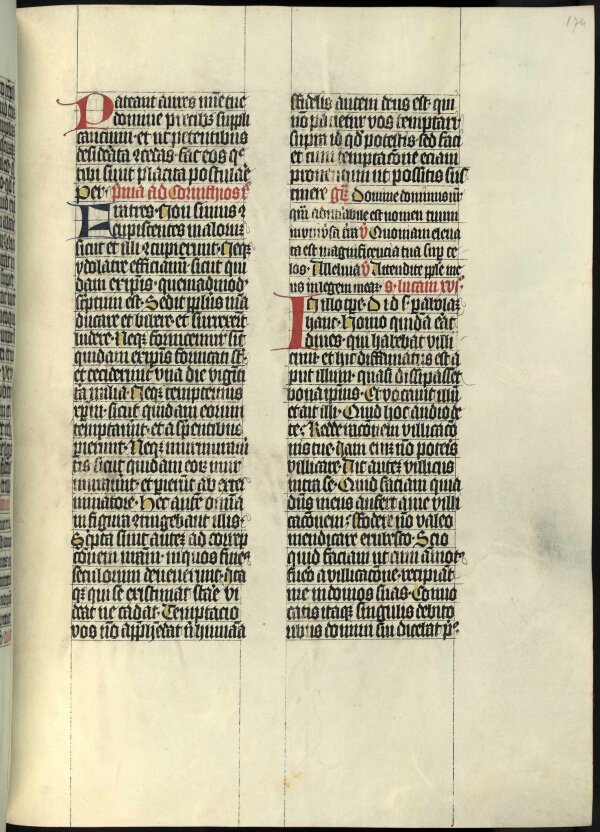 174
Pateant aures mīe tue
domine precibꝫ suppli
cancium · et ut petentibus
desiderata ꝯcedas · fac eos q̄
tibi sunt placita postulare
Per · Prima ad Corinthios x
Fratres · Non simus ꝯ
cupiscentes maloruꝫ
sicut et illi ꝯcupierunt · Neqꝫ
ydolatre efficiam̄ · sicut qui
dam ex ipsis · quemadmod̄
scriptum est · Sedit pplus mā
ducare et bibere · et surrexerūt
ludere · Neqꝫ fornicemur · sic̄
quidam ex ipsis fornicati sūt ·
et ceciderunt una die viginti
tria milia · Neqꝫ temptemus
xpm̄ · sicut quidam eorum
temptauerunt · et a serpentibus
perierunt · Neqꝫ murmuraueri
tis sicut quidam eoꝝ mur
murauerūt · et perierūt ab exter
minatore · Hec autē omnia
in figura ꝯtingebant illis ·
Scripta sunt autem ad correp
tionem nr̄am · in quos fines
seculorum deuenerunt · Ita
qꝫ qui se existimat stare · vi
deat ne cadat · Temptacio
vos nō apprehēdat n̄ humana
fidelis autem deus est · qui
nō pacietur vos temptari
supra id qd̄ potestis · sed faci
et cum temptacōne eciam
prouentum ut possitis sus
tinere gr̄ · Domine dominus nr̄
qm̄ admirabile est nomen tuum
in vniūsa t̄ra v̄ Quoniam eleua
ta est magnificencia tua suꝑ ce
los · Alleluia v̄ Attendite pple me
us in legem meaꝫ · S · lucam xvi ·
In illo tpe · D · ih̄s · parabolaꝫ
hanc · Homo quidā erat
diues · qui habebat villi
cum · et hic diffamatus est a
put illum · quasi dissipasset
bona ipius · Et vocauit illū
et ait illi · Quid hoc audio de
te · Redde racionem villicacō
nis tue · Iam em̄ nō poteris
villicare · Ait autem villicus
intra se · Quid faciam quia
dn̄s meus aufert a me villi
cacōnem · ffodere nō valeo
mendicare erubesco · Scio
quid faciam ut cum amot9
fuero a villicacōne · recipiāt
me in domos suas · Conuo
catis itaqꝫ singulis debito
ribus domini sui dicebat p̄